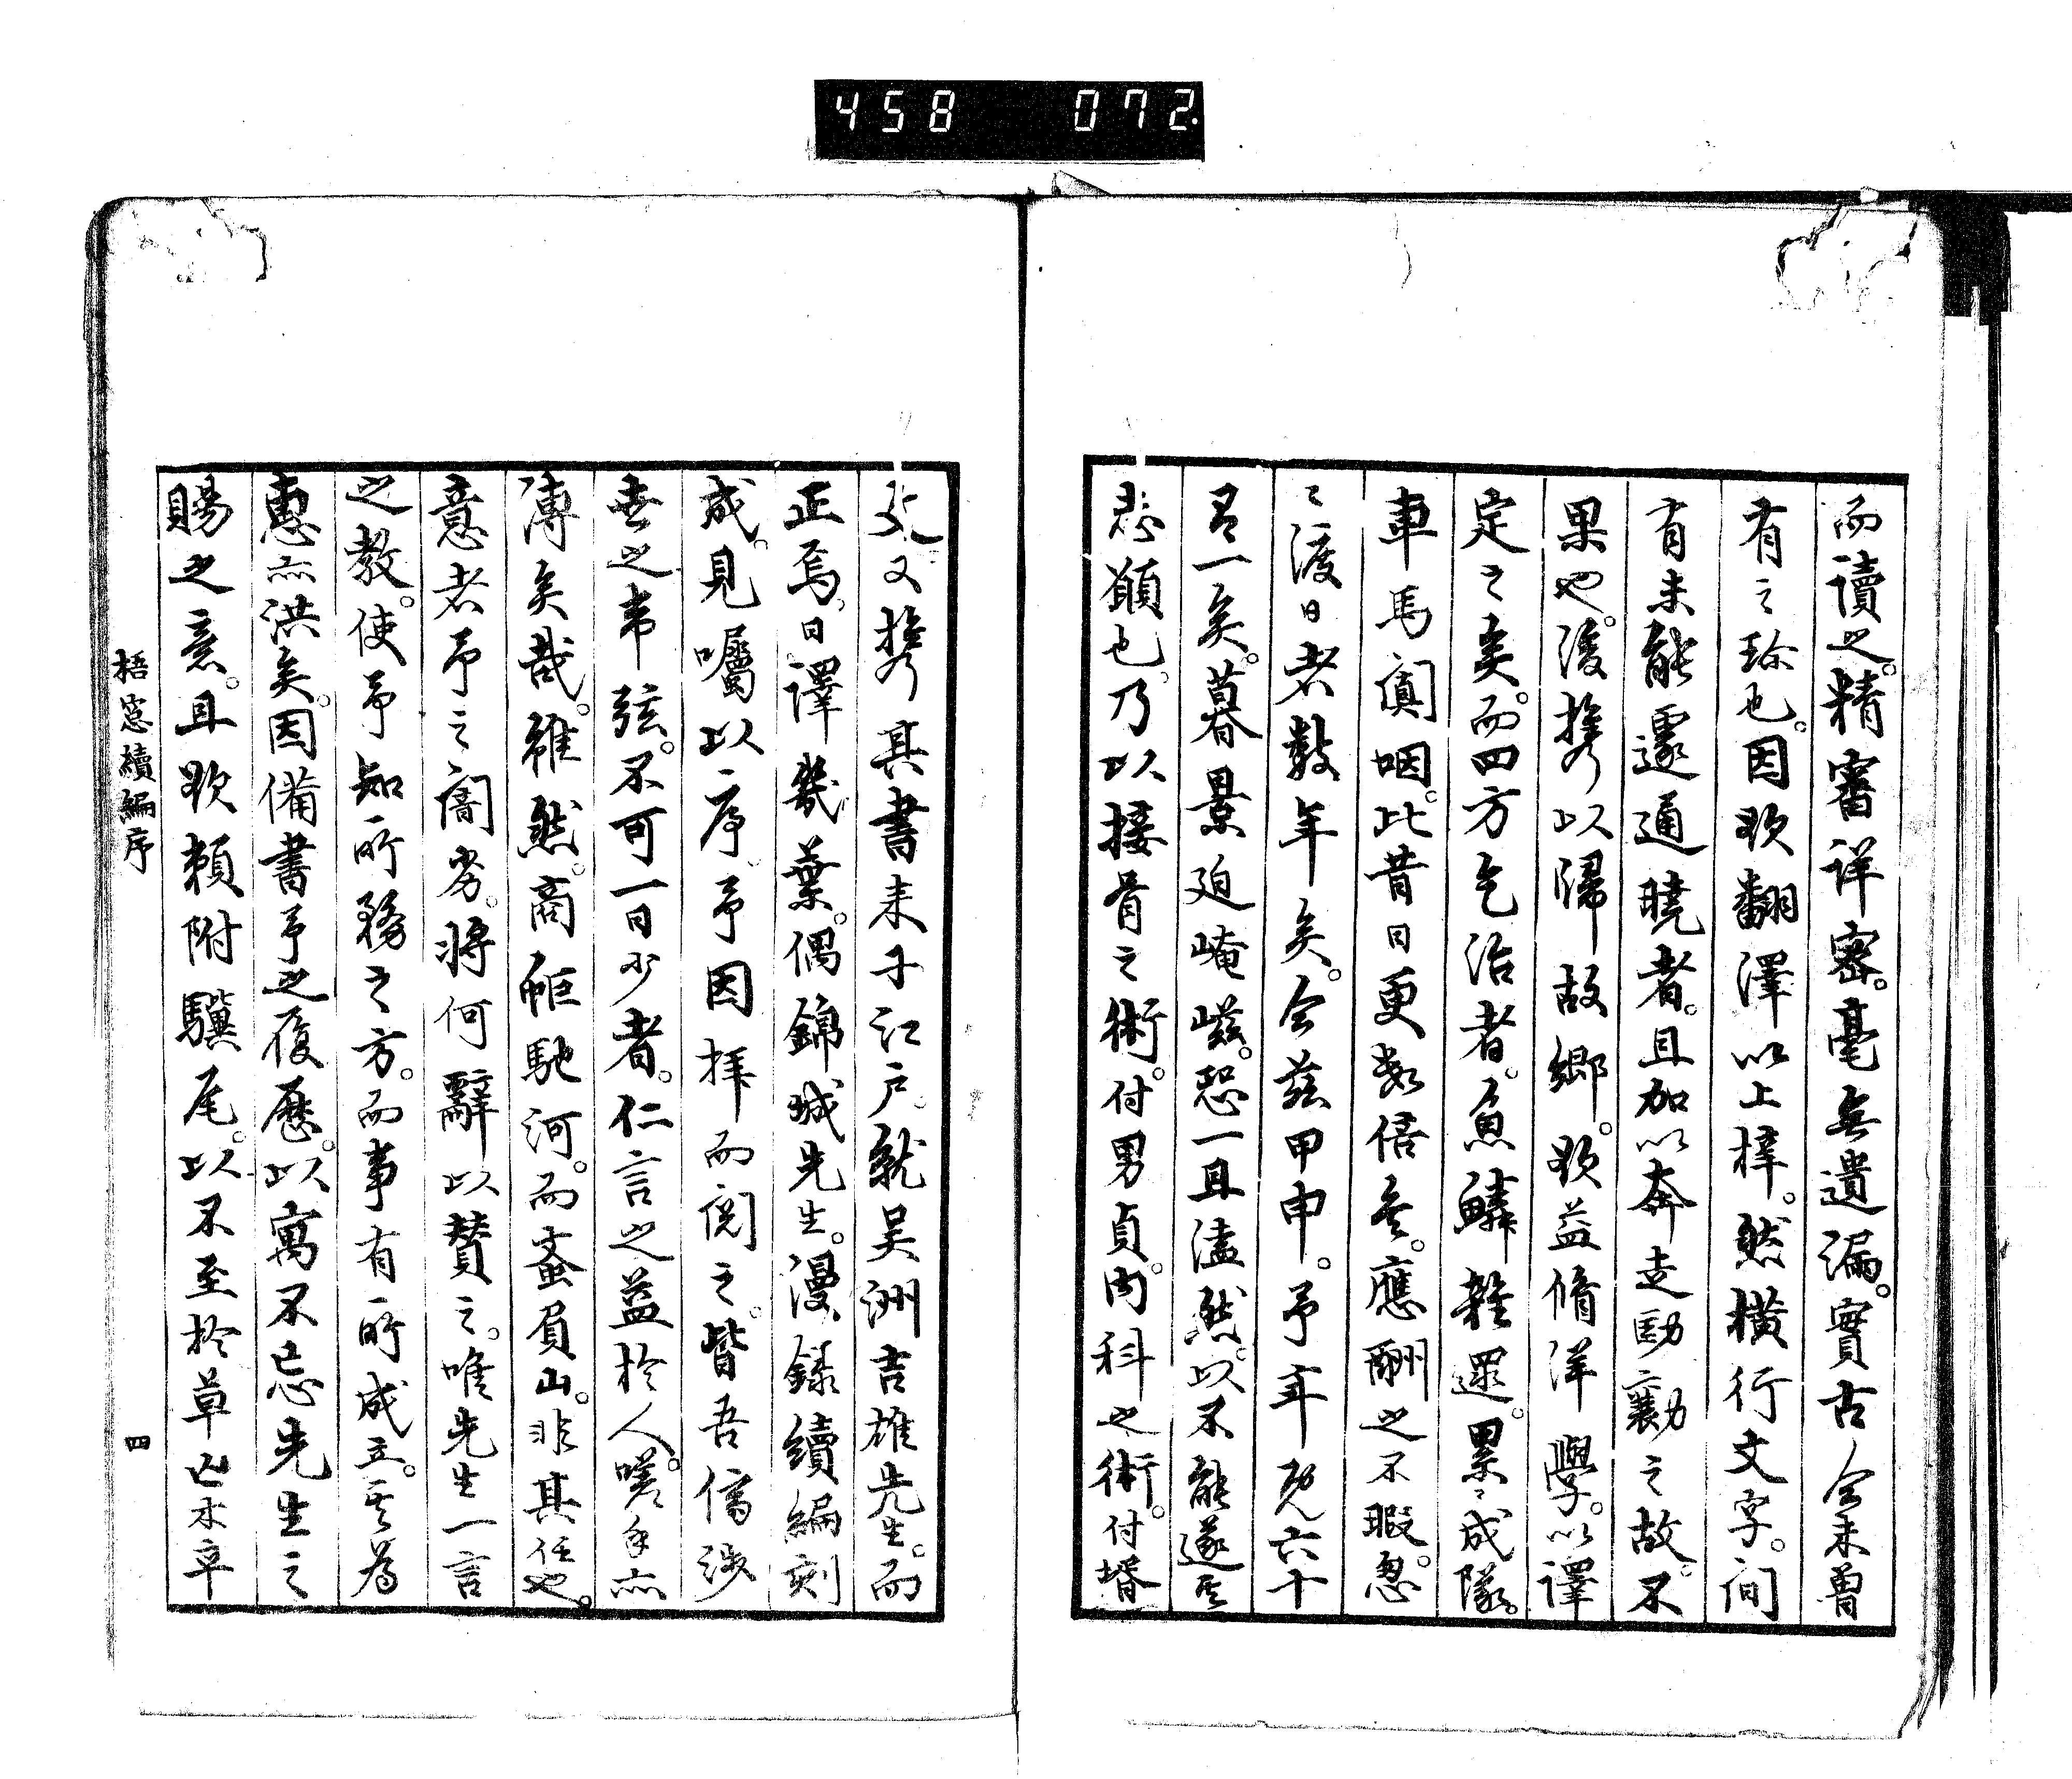 458 072.
而讀之。精審詳密。毫無遺漏。實古今未曾
有之珎也。因欲翻澤以上梓。然橫行文字。間
有未能遽通曉者。且加以奔走劻勷之故。不
果也。後携以歸故鄉。欲益脩洋學。以譯
定之矣。而四方乞治者。魚鱗雜遝。累〻成隊。
車馬闐咽。此昔日更數倍矣。應酬之不暇。忽
〻渡日者數年矣。今茲甲申。予年既六十
有一矣。暮景迫崦嵫。恐一旦溘然。以不能遂其
悲願也。乃以接骨之術。付男貞。內科之術。付壻
文又携其書來于江戶就吳洲吉雄先生。而
正焉。日譯幾葉。偶錦城先生。漫錄續編刻
成。見囑以序。予因拜而閱之。皆吾儕涉
世之韋弦。不可一日少者。仁言之益於人。嗟乎亦
溥矣哉。雖然。商蚷馳河。而蚉負山。非其任也。
意者予之闇劣。將何辭以賛之。唯先生一言
之教。使予知所務之方。而事有所成立。其為
惠亦洪矣。因備書予之履歷。以寓不忘先生之
賜之意。且欲賴附驥尾。以不至於草亡木卒
梧窓續編序
四